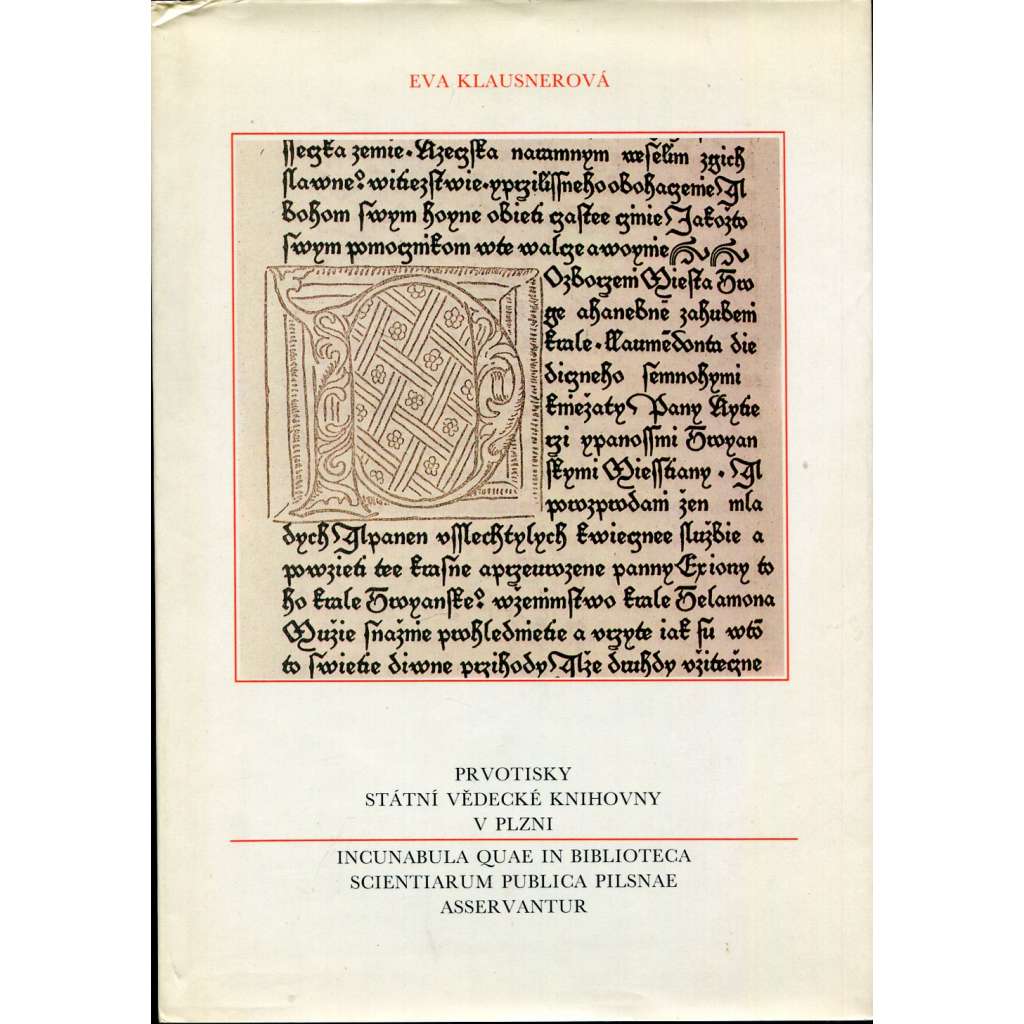 EVA KLAUSNEROVÁ
ssegka zemie. Azegska naramnym weselim zgich
slawne? witiezstwie. yprzilissneho obohagenie Al
bohom swym hoyne obieti gastee ginie Jakožto
swym pomognikom wte walge awoynie
Ozborzeni Miesta Tro
ge ahanebne zahubeni
krale. Laumedonta die
dicgneho semnohymi
kniežaty Pany Rytie
rzi ypanossmi Troyan
skymi Miesstiany. Al
porozprodani žen mla
dych Alpanen vsslechtylych kwiecgnee službie a
powzieti tee krasne aprzeurozene panny Exiony to
ho krale Troyanske? wženimstwo krale Telamona
Mužie snažnie prohlednietie a vrzyte iak su wto
to swietie diwne przihody Alže druhdy vžitečne
PRVOTISKY
STÁTNÍ VĚDECKÉ KNIHOVNY
V PLZNI
INCUNABULA QUAE IN BIBLIOTECA
SCIENTIARUM PUBLICA PILSNAE
ASSERVANTUR